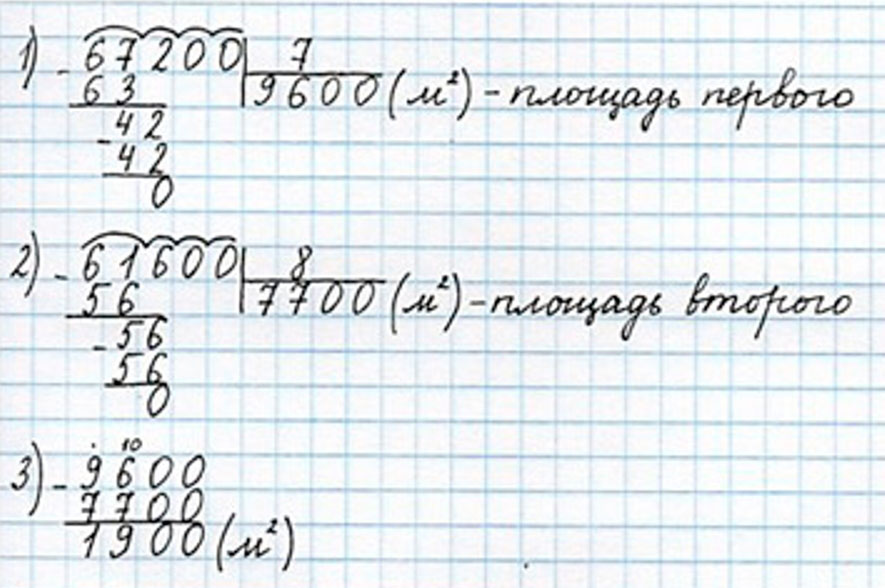 1) - 67200 | 7
63 | 9600 (м²) - площадь первого
- 42
42
0
2) - 61600 | 8
56 | 7700 (м²) - площадь второго
- 56
56
0
· 10
3) - 9600
7700
1900 (м²)